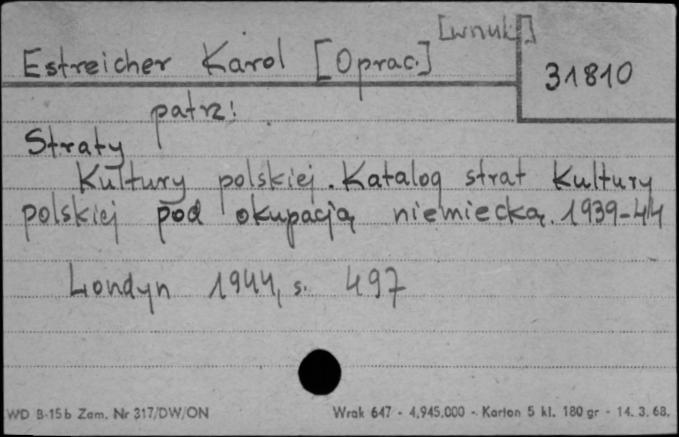 [wnuk]
Estreicher Karol [Oprac.]
31810
patrz:
Straty
Kultury polskiej. Katalog strat Kultury
polskiej pod okupacją niemiecką. 1939-44
Londyn 1944, s. 497
WD B-15b Zam. Nr 317/DW/ON
Wrak 647 - 4.945.000 - Karton 5 kl. 180 gr - 14. 3. 68.